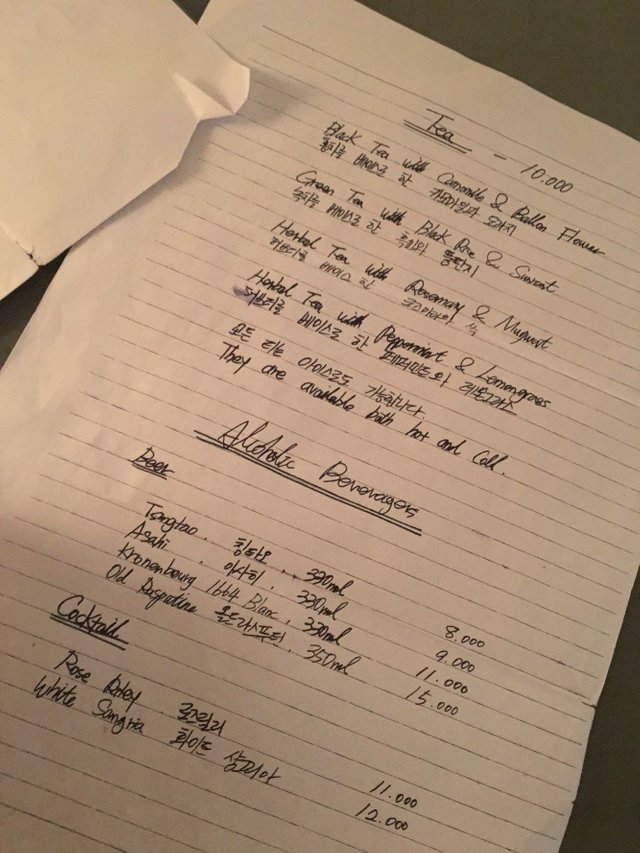 Tea - 10.000
Black Tea with Camomile & Ballon Flower
홍차를 베이스로 한 카모마일과 도라지
Green Tea with Black Rice & Sunroot
녹차를 베이스로 한 흑미와 뚱딴지
Herbal Tea with Rosemary & Mugwort
허브티를 베이스 한 로즈마리와 쑥
Herbal Tea with Peppermint & Lemongrass
허브티를 베이스로 한 페퍼민트와 레몬그라스
모든 티는 아이스로도 가능합니다.
They are available both hot and cold.
Alcoholic Beverages
Beer
Tsingtao. 칭타오. 330ml 8.000
Asahi. 아사히. 330ml 9.000
Kronenbourg 1664 Blanc, 330ml 11.000
Old Rasputine 올드라스푸틴. 350ml 15.000
Cocktail
Rose Riley 로즈릴리 11.000
White Sangria 화이트 샹그리아 12.000